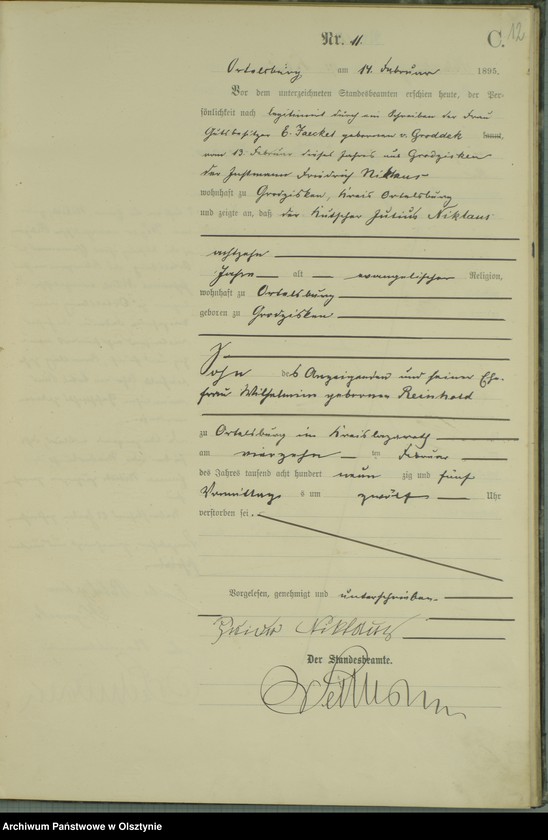 12
Nr. 11
C.
Ortelsburg am 14. Februar 1895.
Vor dem unterzeichneten Standesbeamten erschien heute, der Per-
sönlichkeit nach legitimirt durch ein Schreiben der Frau
Gutsbesitzer E. Jaeckel geborenen v. Groddek kannt,
vom 13. Februar dieses Jahres aus Grodzisken
der Instmann Friedrich Niklaus
wohnhaft zu Grodzisken, Kreis Ortelsburg
und zeigte an, daß der Kutscher Julius Niklaus
achtzehn
Jahre alt evangelischer Religion,
wohnhaft zu Ortelsburg
geboren zu Grodzisken
Sohn des Anzeigenden und seiner Ehe-
frau Wilhelmine geborenen Reinhold
zu Ortelsburg im Kreislazareth
am vierzehn ten Februar
des Jahres tausend acht hundert neun zig und fünf
Vormittags um zwölf Uhr
verstorben sei.
Vorgelesen, genehmigt und unterschrieben.
Niklaus
Der Standesbeamte.
Archiwum Państwowe w Olsztynie